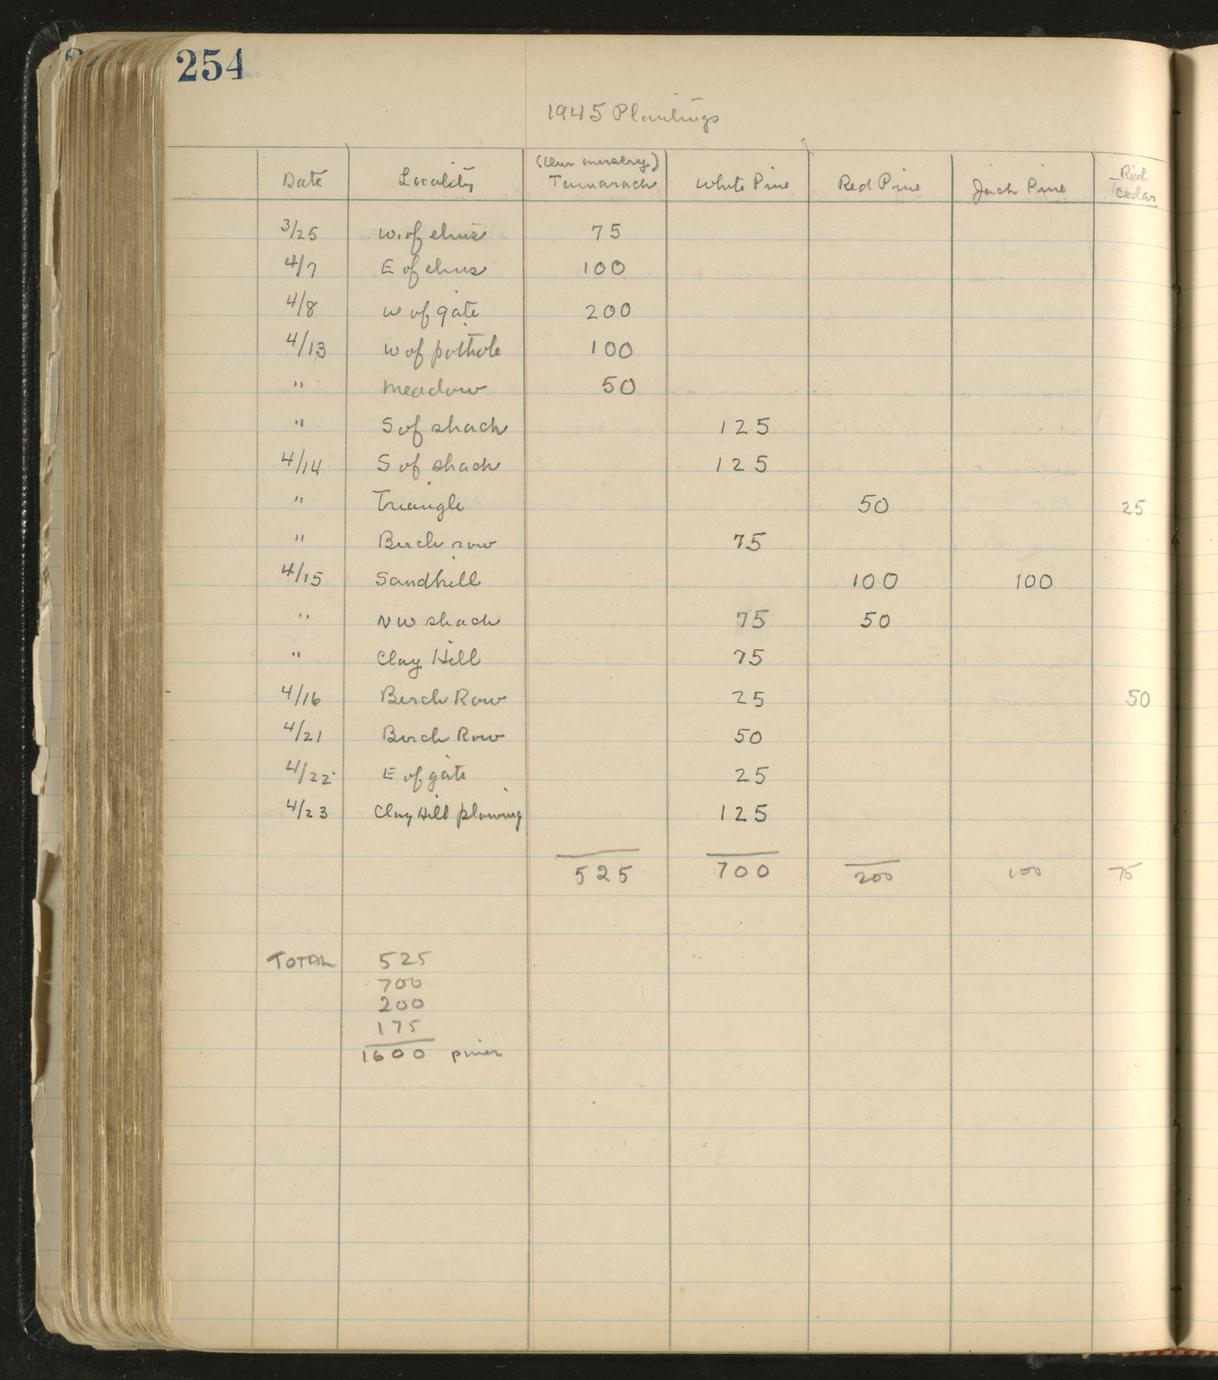 254
1945 Plantings
Date Locality (Own nursery) Tamarack White Pine Red Pine Jack Pine Red Cedar
3/25 W. of elms 75
4/7 E of elms 100
4/8 W of gate 200
4/13 W of pothole 100
" Meadow 50
" S of shack 125
4/14 S of shack 125
" Triangle 50 25
" Birch row 75
4/15 Sandhill 100 100
" NW shack 75 50
" Clay Hill 75
4/16 Birch Row 25 50
4/21 Birch Row 50
4/22 E of gate 25
4/23 Clay Hill plowing 125
525 700 200 100 75
TOTAL 525
700
200
175
1600 pines